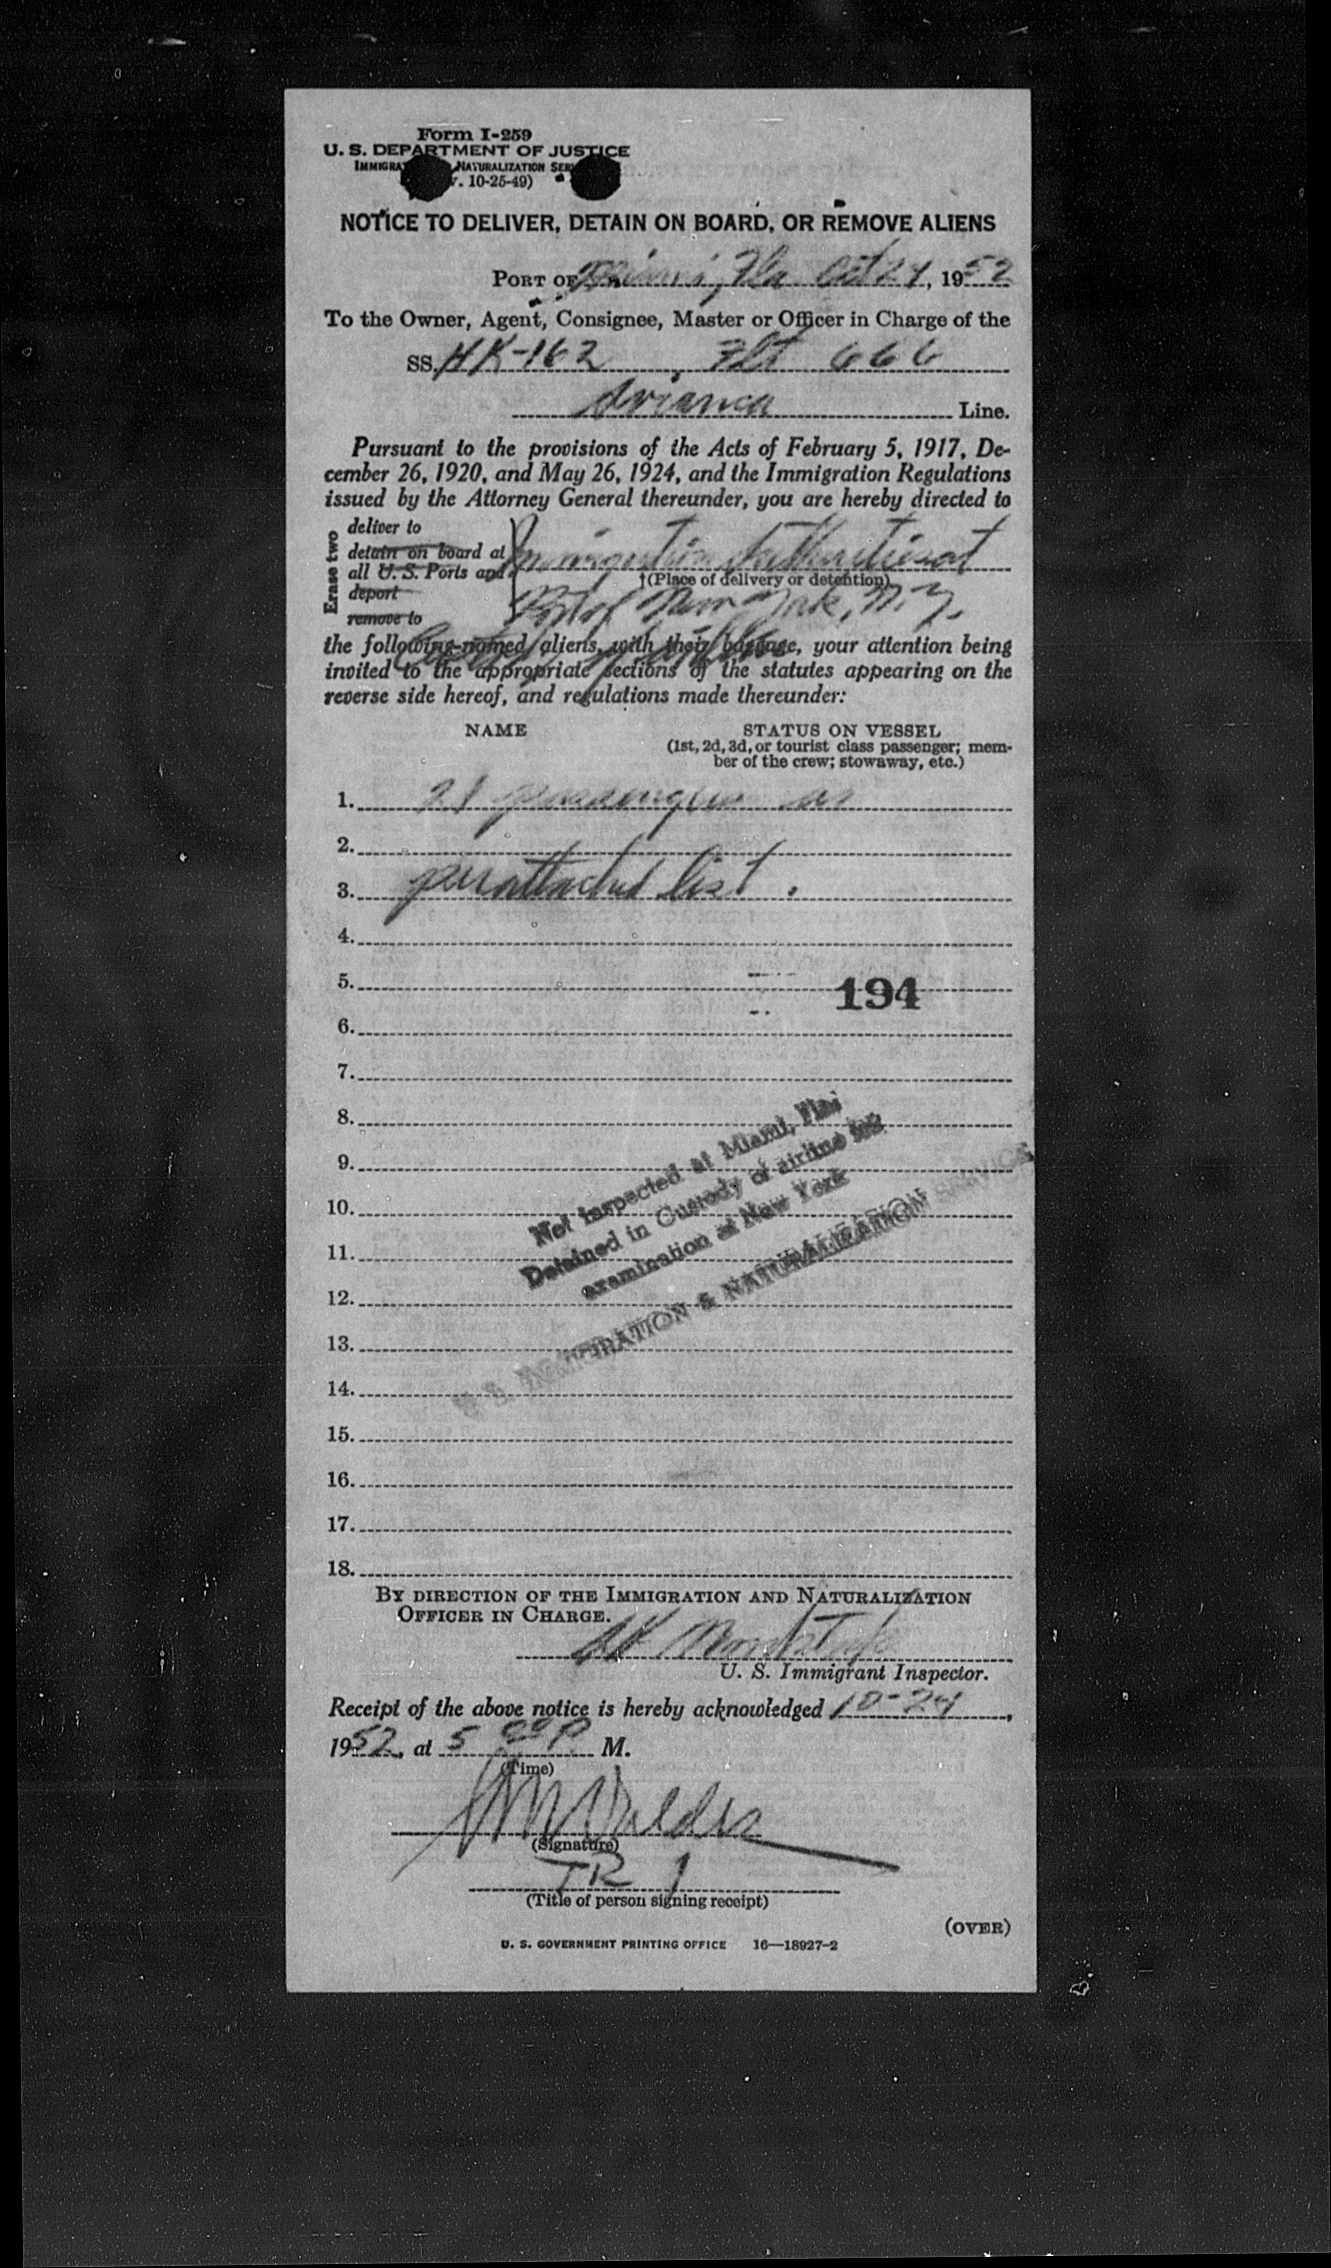 Form I-259
U. S. DEPARTMENT OF JUSTICE
IMMIGRA NATURALIZATION SER
v. 10-25-49)
NOTICE TO DELIVER, DETAIN ON BOARD, OR REMOVE ALIENS
PORT OF Miami, Fla Oct 24, 1952
To the Owner, Agent, Consignee, Master or Officer in Charge of the
SS. HK-162 Flt 666
Avianca Line.
Pursuant to the provisions of the Acts of February 5, 1917, De-
cember 26, 1920, and May 26, 1924, and the Immigration Regulations
issued by the Attorney General thereunder, you are hereby directed to
Erase two
deliver to
detain on board at
all U. S. Ports and
deport
remove to
Immigration Authorities at
†(Place of delivery or detention)
Port of New York, N.Y.
the following-named aliens, with their baggage, your attention being
invited to the appropriate sections of the statutes appearing on the
reverse side hereof, and regulations made thereunder:
NAME STATUS ON VESSEL
(1st, 2d, 3d, or tourist class passenger; mem-
ber of the crew; stowaway, etc.)
1. 21 passengers as
2.
3. per attached list.
4.
5. 194
6.
7.
8.
9.
10.
11.
12.
13.
14.
15.
16.
17.
18.
Not inspected at Miami, Fla;
Detained in Custody of airline for
examination at New York
U. S. IMMIGRATION & NATURALIZATION SERVICE
BY DIRECTION OF THE IMMIGRATION AND NATURALIZATION
OFFICER IN CHARGE.
U. S. Immigrant Inspector.
Receipt of the above notice is hereby acknowledged 10-24,
1952, at 5 00 P M.
(Time)
(Signature)
(Title of person signing receipt)
(OVER)
U. S. GOVERNMENT PRINTING OFFICE 16—18927-2